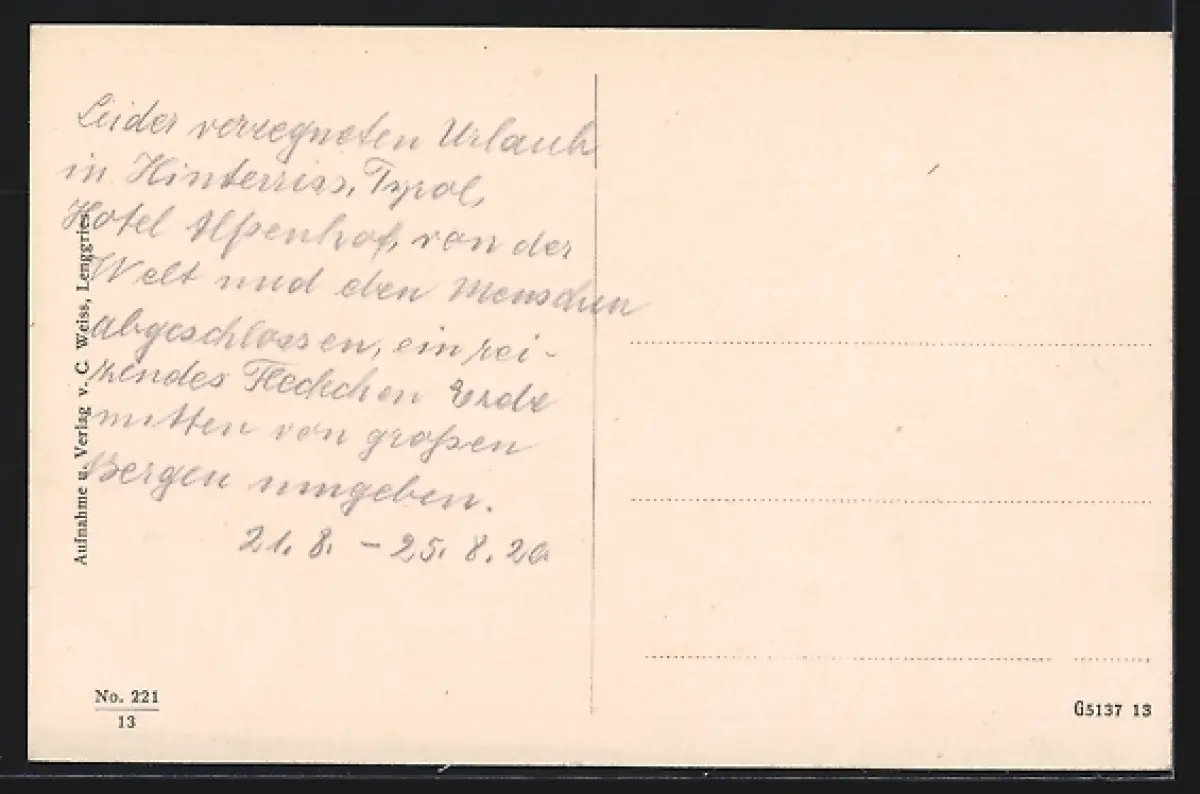 Leider verregneten Urlaub
in Hinterriss, Tyrol,
Hotel Alpenhof, von der
Welt und den Menschen
abgeschlossen, ein rei-
zendes Fleckchen Erde
mitten von großen
Bergen umgeben.
21. 8. – 25. 8. 20
Aufnahme u. Verlag v. C. Weiss, Lenggries
No. 221
13
G5137 13